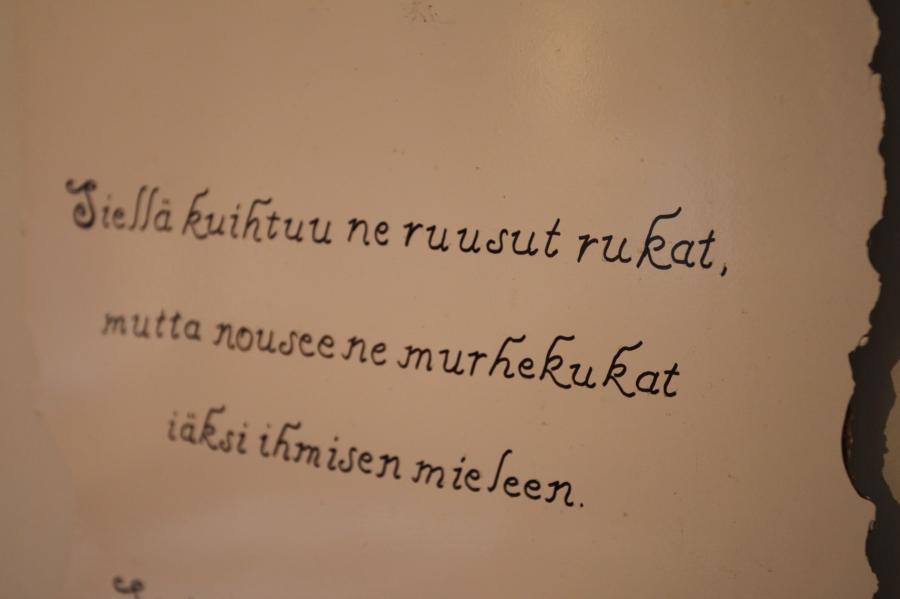 Siellä kuihtuu ne ruusut rukat,
mutta nousee ne murhekukat
iäksi ihmisen mieleen.